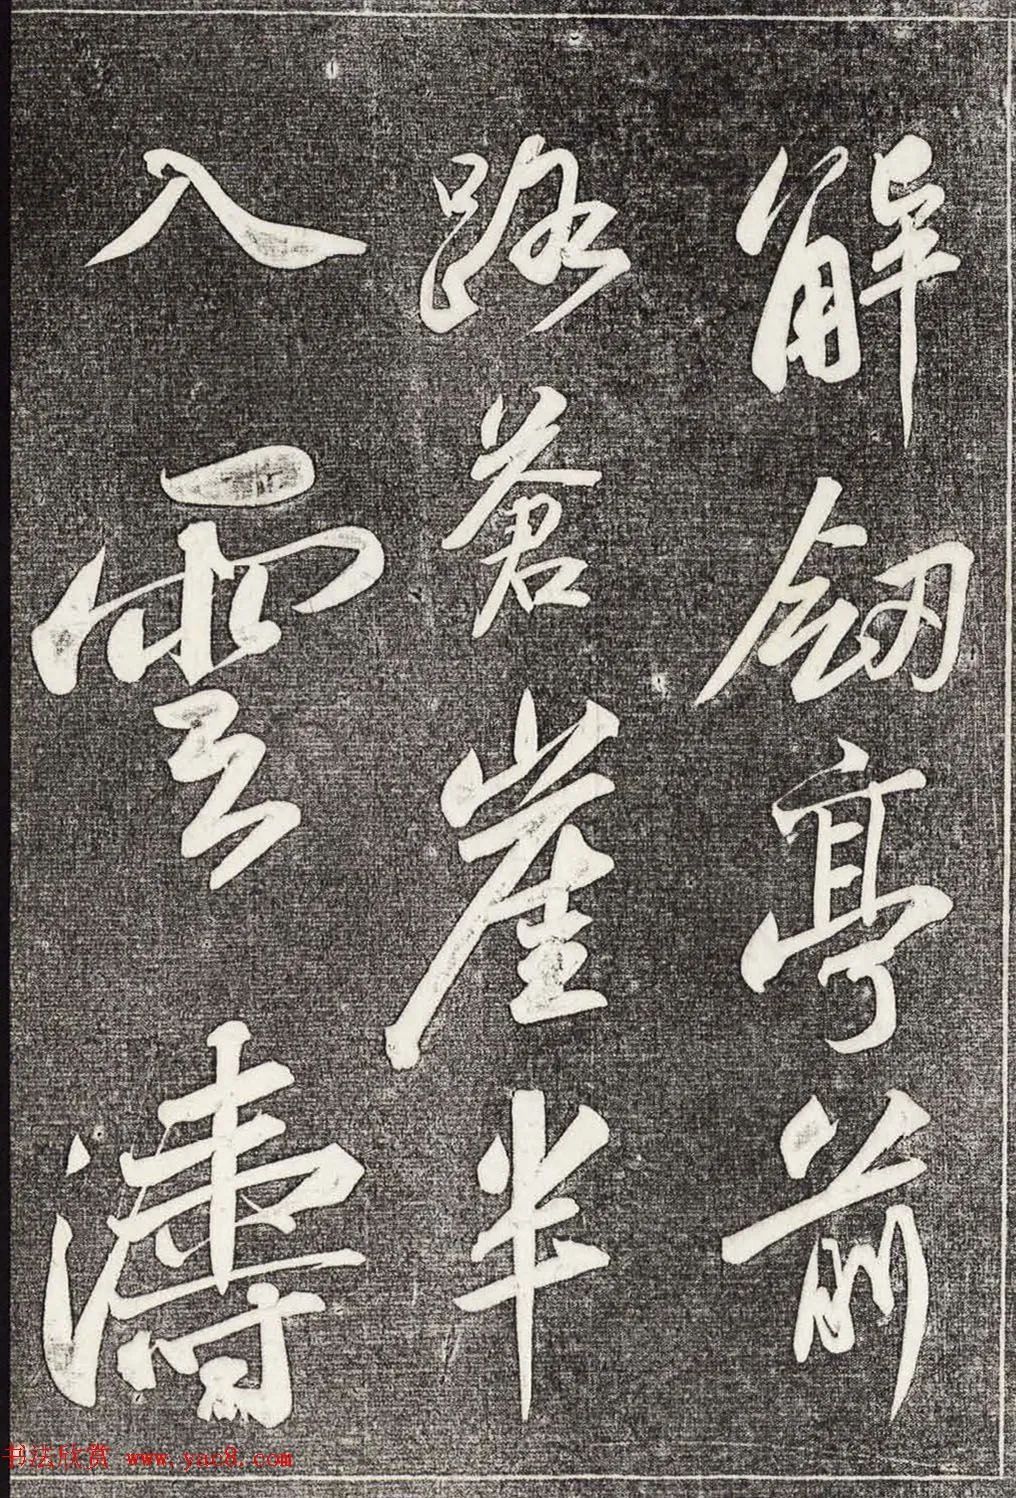 解劒亭前
路蒼崖半
入雲濤
书法欣赏 www.yac8.com